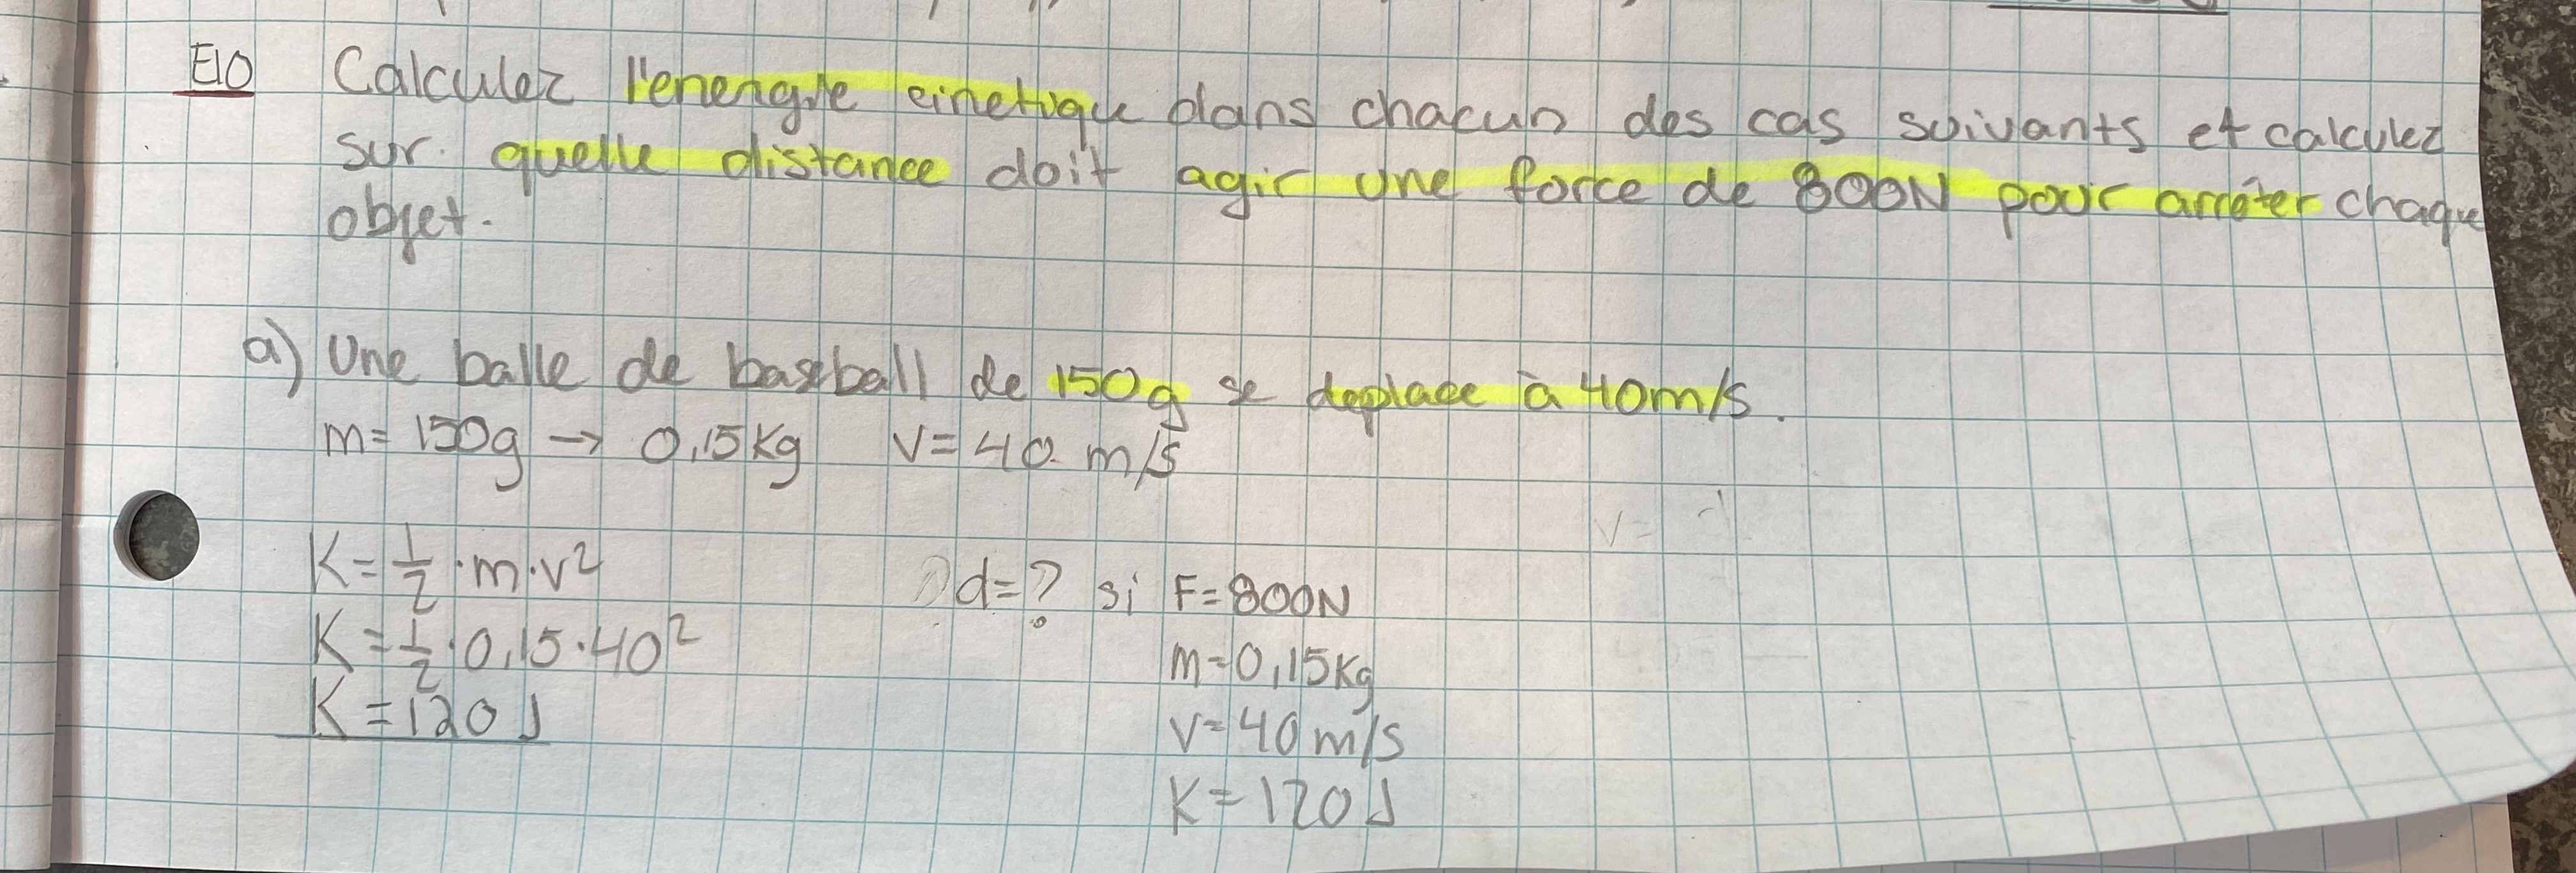 E10 Calculez l'energie cinetique dans chacun des cas suivants et calculez
sur quelle distance doit agir une force de 800N pour arrêter chaque
objet.
a) Une balle de baseball de 150g se deplace à 40m/s.
m= 150g → 0,15Kg V= 40 m/s
V=
K= 1/2 · m · v²
d=? si F= 800N
K= 1/2 · 0,15 · 40²
m=0,15Kg
K=120J
V=40m/s
K=120J